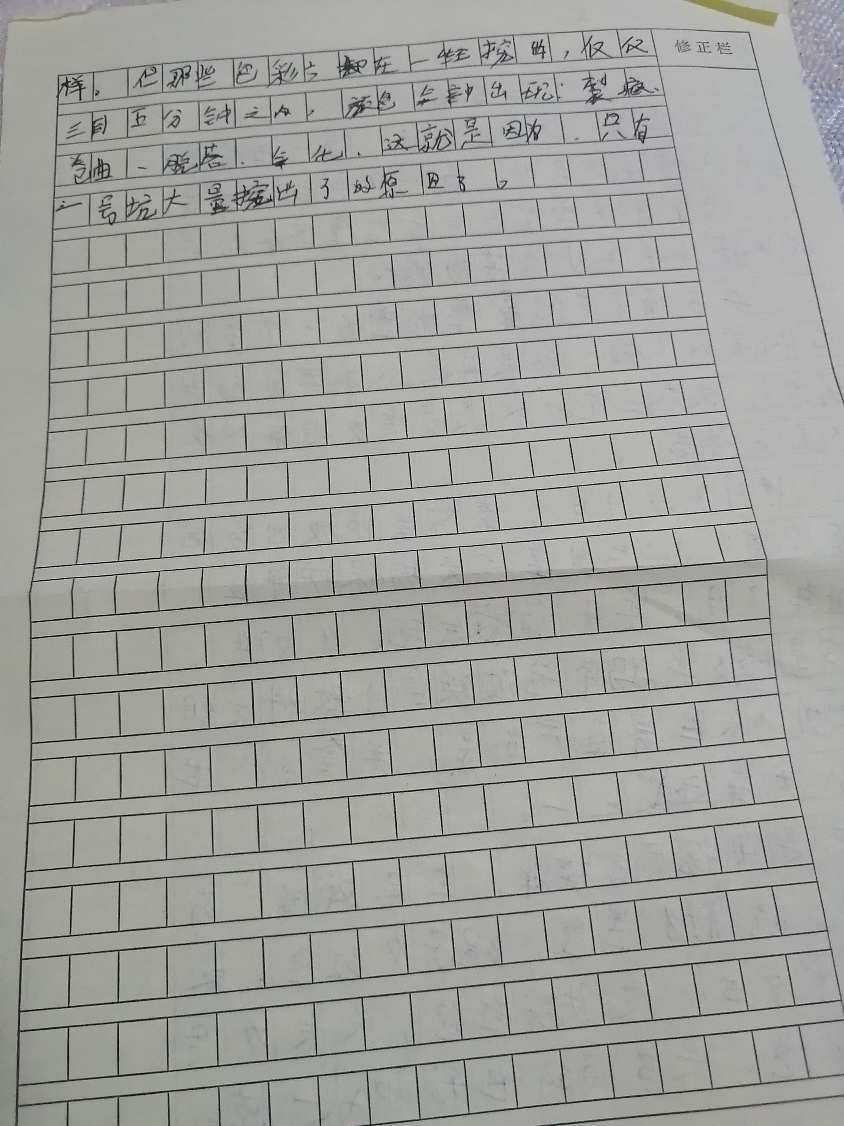 样。但那些色彩在一经挖出,仅仅 修正栏
三同五分钟之内,颜色会出现裂痕.
卷曲、脱落、。这就是因为,只有
一号坑大量挖出了的原因了。